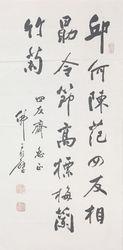 邱何陳范四友相
勗令節高標梅蘭
竹菊
四友齋 惠正